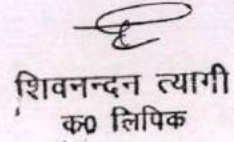 शिवनन्दन त्यागी
क0 लिपिक